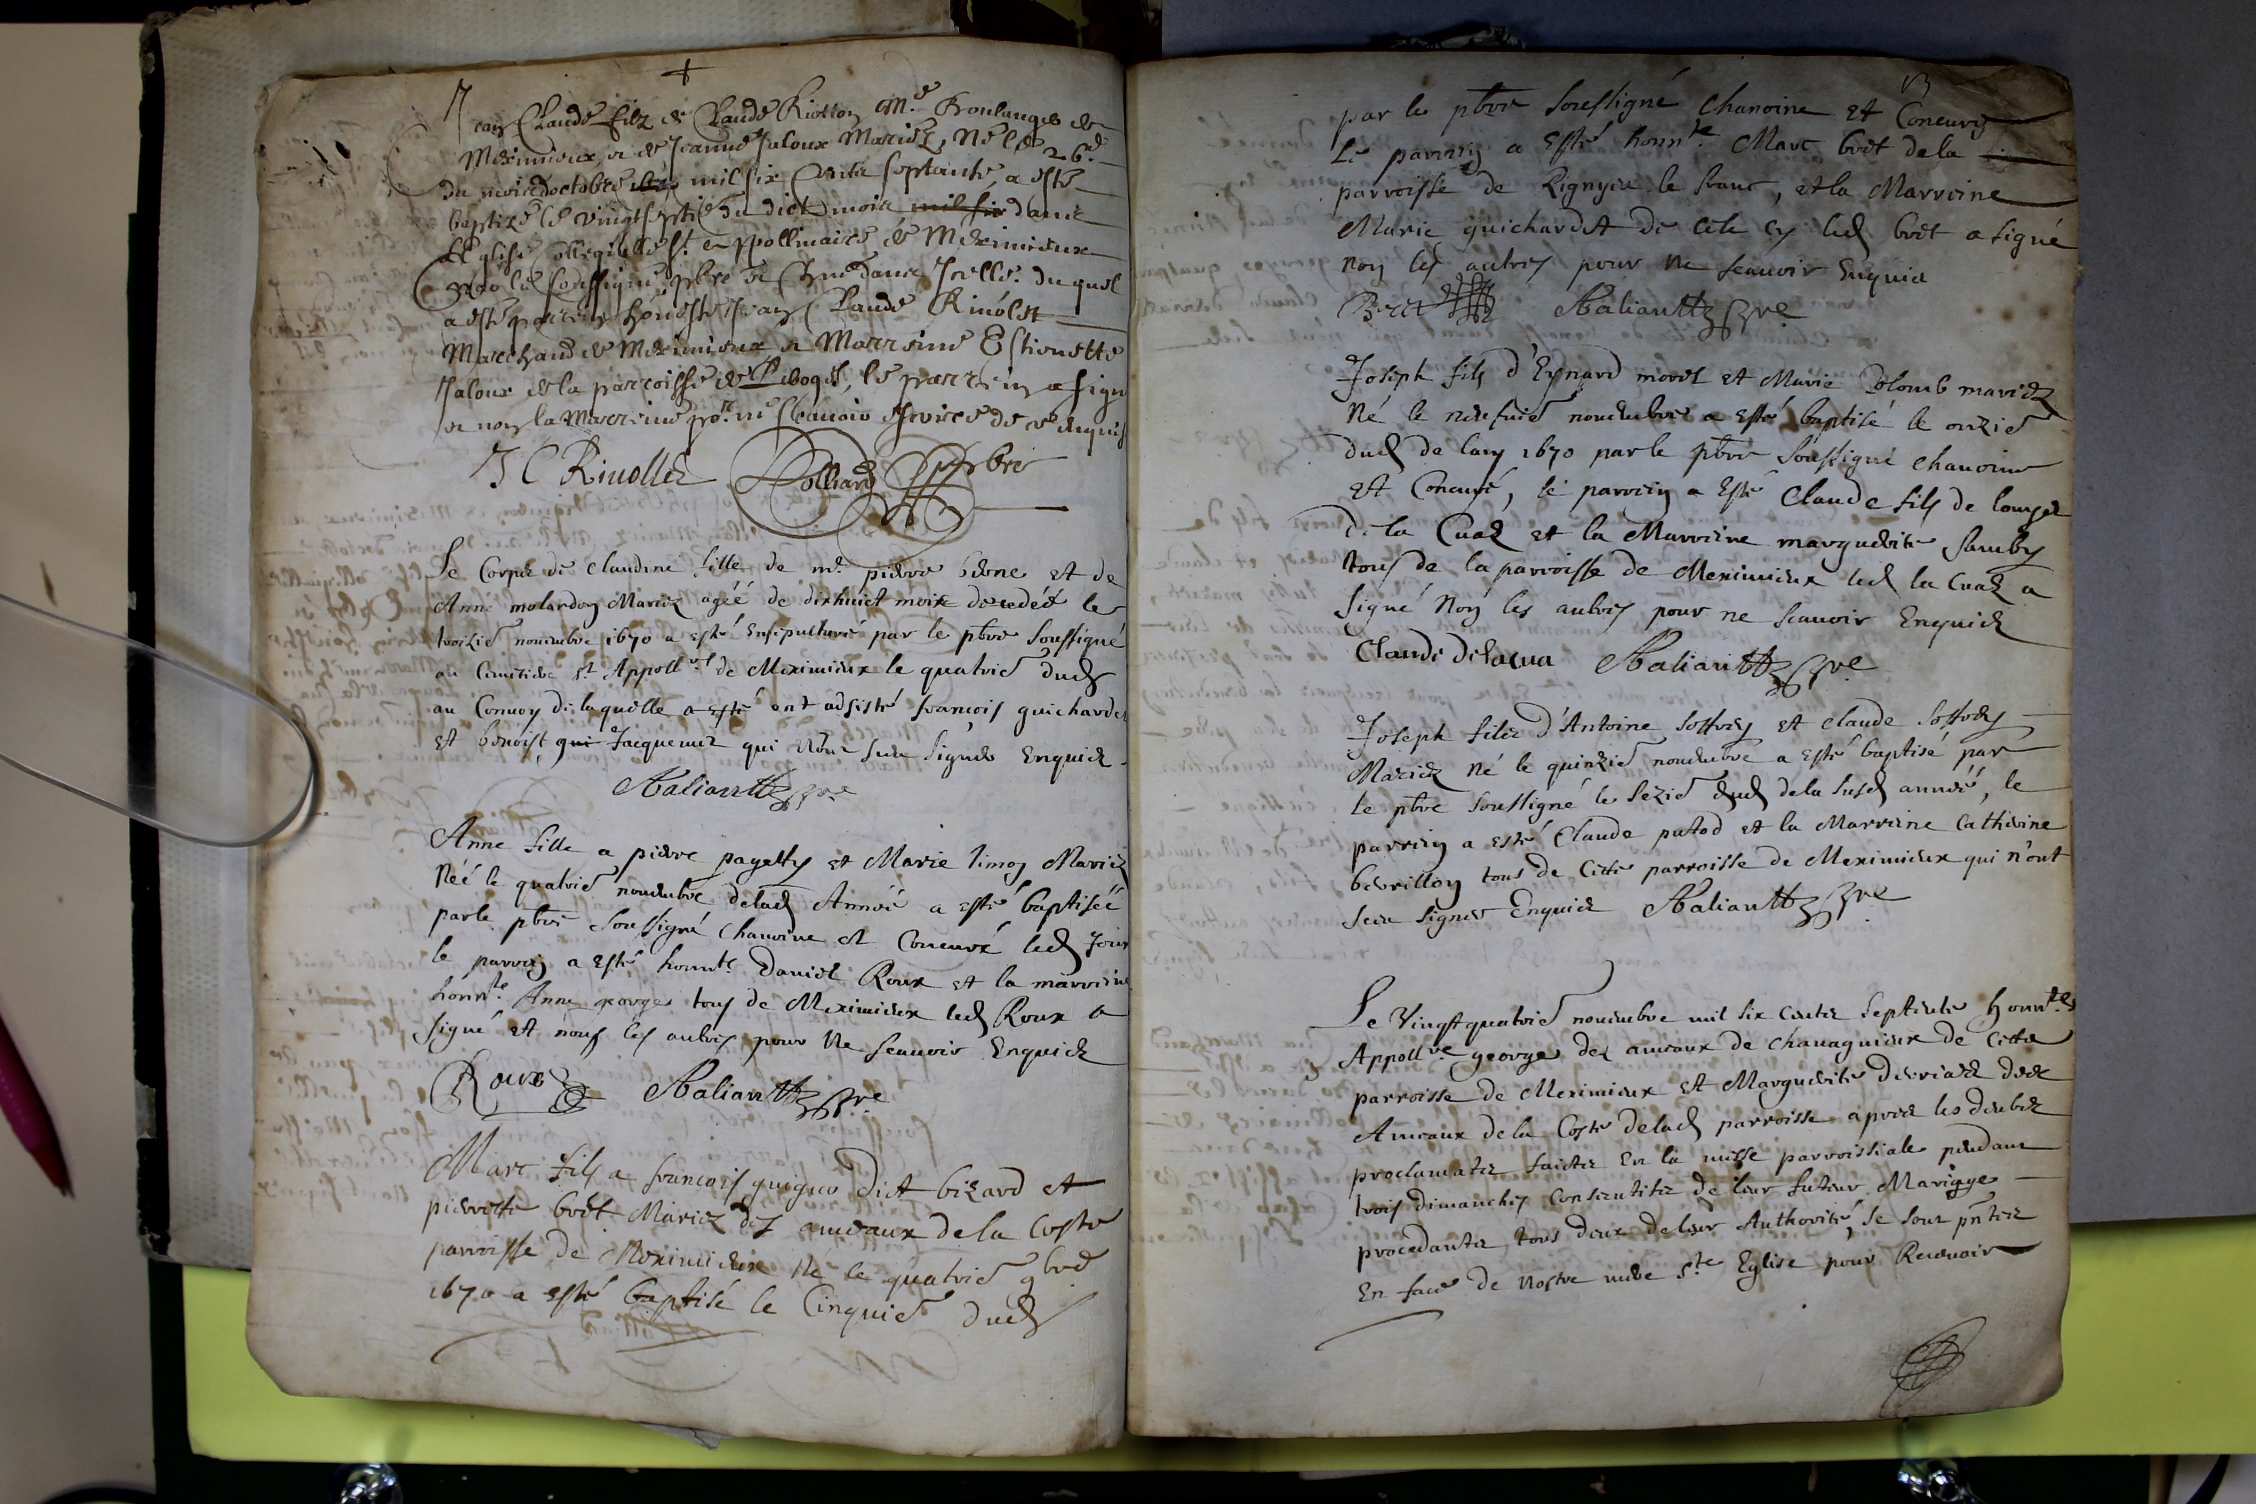 Jean Claude filz de Claude Riotton Me Boulanger de
Meximieux et de Jeanne Jaloux Mariez, Né le 26e
du mois doctobre mil six Cents septante, a esté
baptizé le vingtseptie du dict mois mil six dans
LEglise Collegialle St Appollinaire de Meximieux
par le soussigné pbre et dans Icelle. duquel
a esté parrein honeste Jean Claude Rivollet
Marchand de Meximieux et Marreine Estienette
Jaloux de la parroisse de , le parrein a signé
et non la Marreine por ne scavoir de ce enquis
J C Rivollet Dolliard pbre
Le Corps de Claudine fille de me pierre berne et de
Anne molardon Mariez agéé de dixhuict mois decedéé le
troizie novembre 1670 a esté Ensepulturé par le pbre soussigné
au Cimitiere St Appollre de Meximieux le quatrie dud
au Convoy de laquelle a esté ont adsisté francois guichardet
et benoist qui Jacquemet qui nont sceu signer Enquis
Baliautt
Anne fille a pierre pagetty et Marie Simon Mariez
Néé le quatrie novembre delad Annéé a esté baptiséé
par le pbre soussigné Chanoine et Concuré led Jour
le parrin a esté honnte Daniel Roux et la marreine
honnte Anne george tous de Meximieux led Roux a
signé et nous les autres pour ne scavoir Enquis
Roux Baliautt
Marc fils a francois guigue Dict bizard et
pierrette bret Mariez des ameaux de la Coste
parroisse de Meximieux Né le quatrie 9bre
1670 a esté baptisé le Cinquie dud
par le pbre soussigné Chanoine et Concuré
Le parrin a esté honnte Marc bret de la
parroisse de Rignyeu le franc, et la Marreine
Marie guichardet de cete cy led bret a signé
non les autres pour ne scavoir Enquis
Bret Baliautt
Joseph fils d'Eynard morel et Marie Colomb mariez
Né le neufvie novembre a esté baptisé le onzie
dud de lan 1670 par le pbre soussigné chanoine
et Concuré, le parrein a esté Claude fils de
De la Cuaz et la Marreine marguerite
tous de la parroisse de Meximieux led la Cuaz a
signé Non les autres pour ne scavoir Enquis
Claude delacua Baliautt
Joseph filz d'Antoine Joffrey et claude Joffrey
Mariez Né le quinzie novembre a esté baptisé par
le pbre soussigné le sezie dud de la susd annéé, le
parrein a esté Claude putod et la Marreine Catherine
bevrillon tous de Cette parroisse de Meximieux qui n'ont
sceu signer Enquis Baliautt
Le Vingtquatrie novembre mil six cents septente honntes
Appollre george des ameaux de chavagnieux de Cette
parroisse de Meximieux et Marguerite des
Ameaux de la Coste delad parroisse apres les deubes
proclamates faictes En la messe parroissiale pendant
trois dimanches Consecutifs de leur futeur Mariage
procedantz tous deux de leur Authorité, se sont pntez
En face de Nostre mere Ste Eglise pour Recevoir